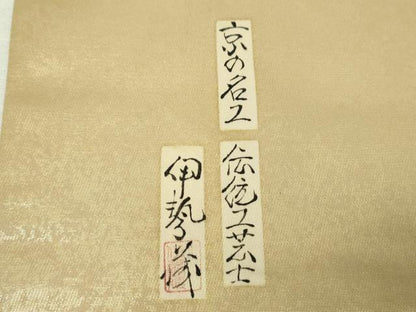 京の名工
伝統工芸士
伊勢義